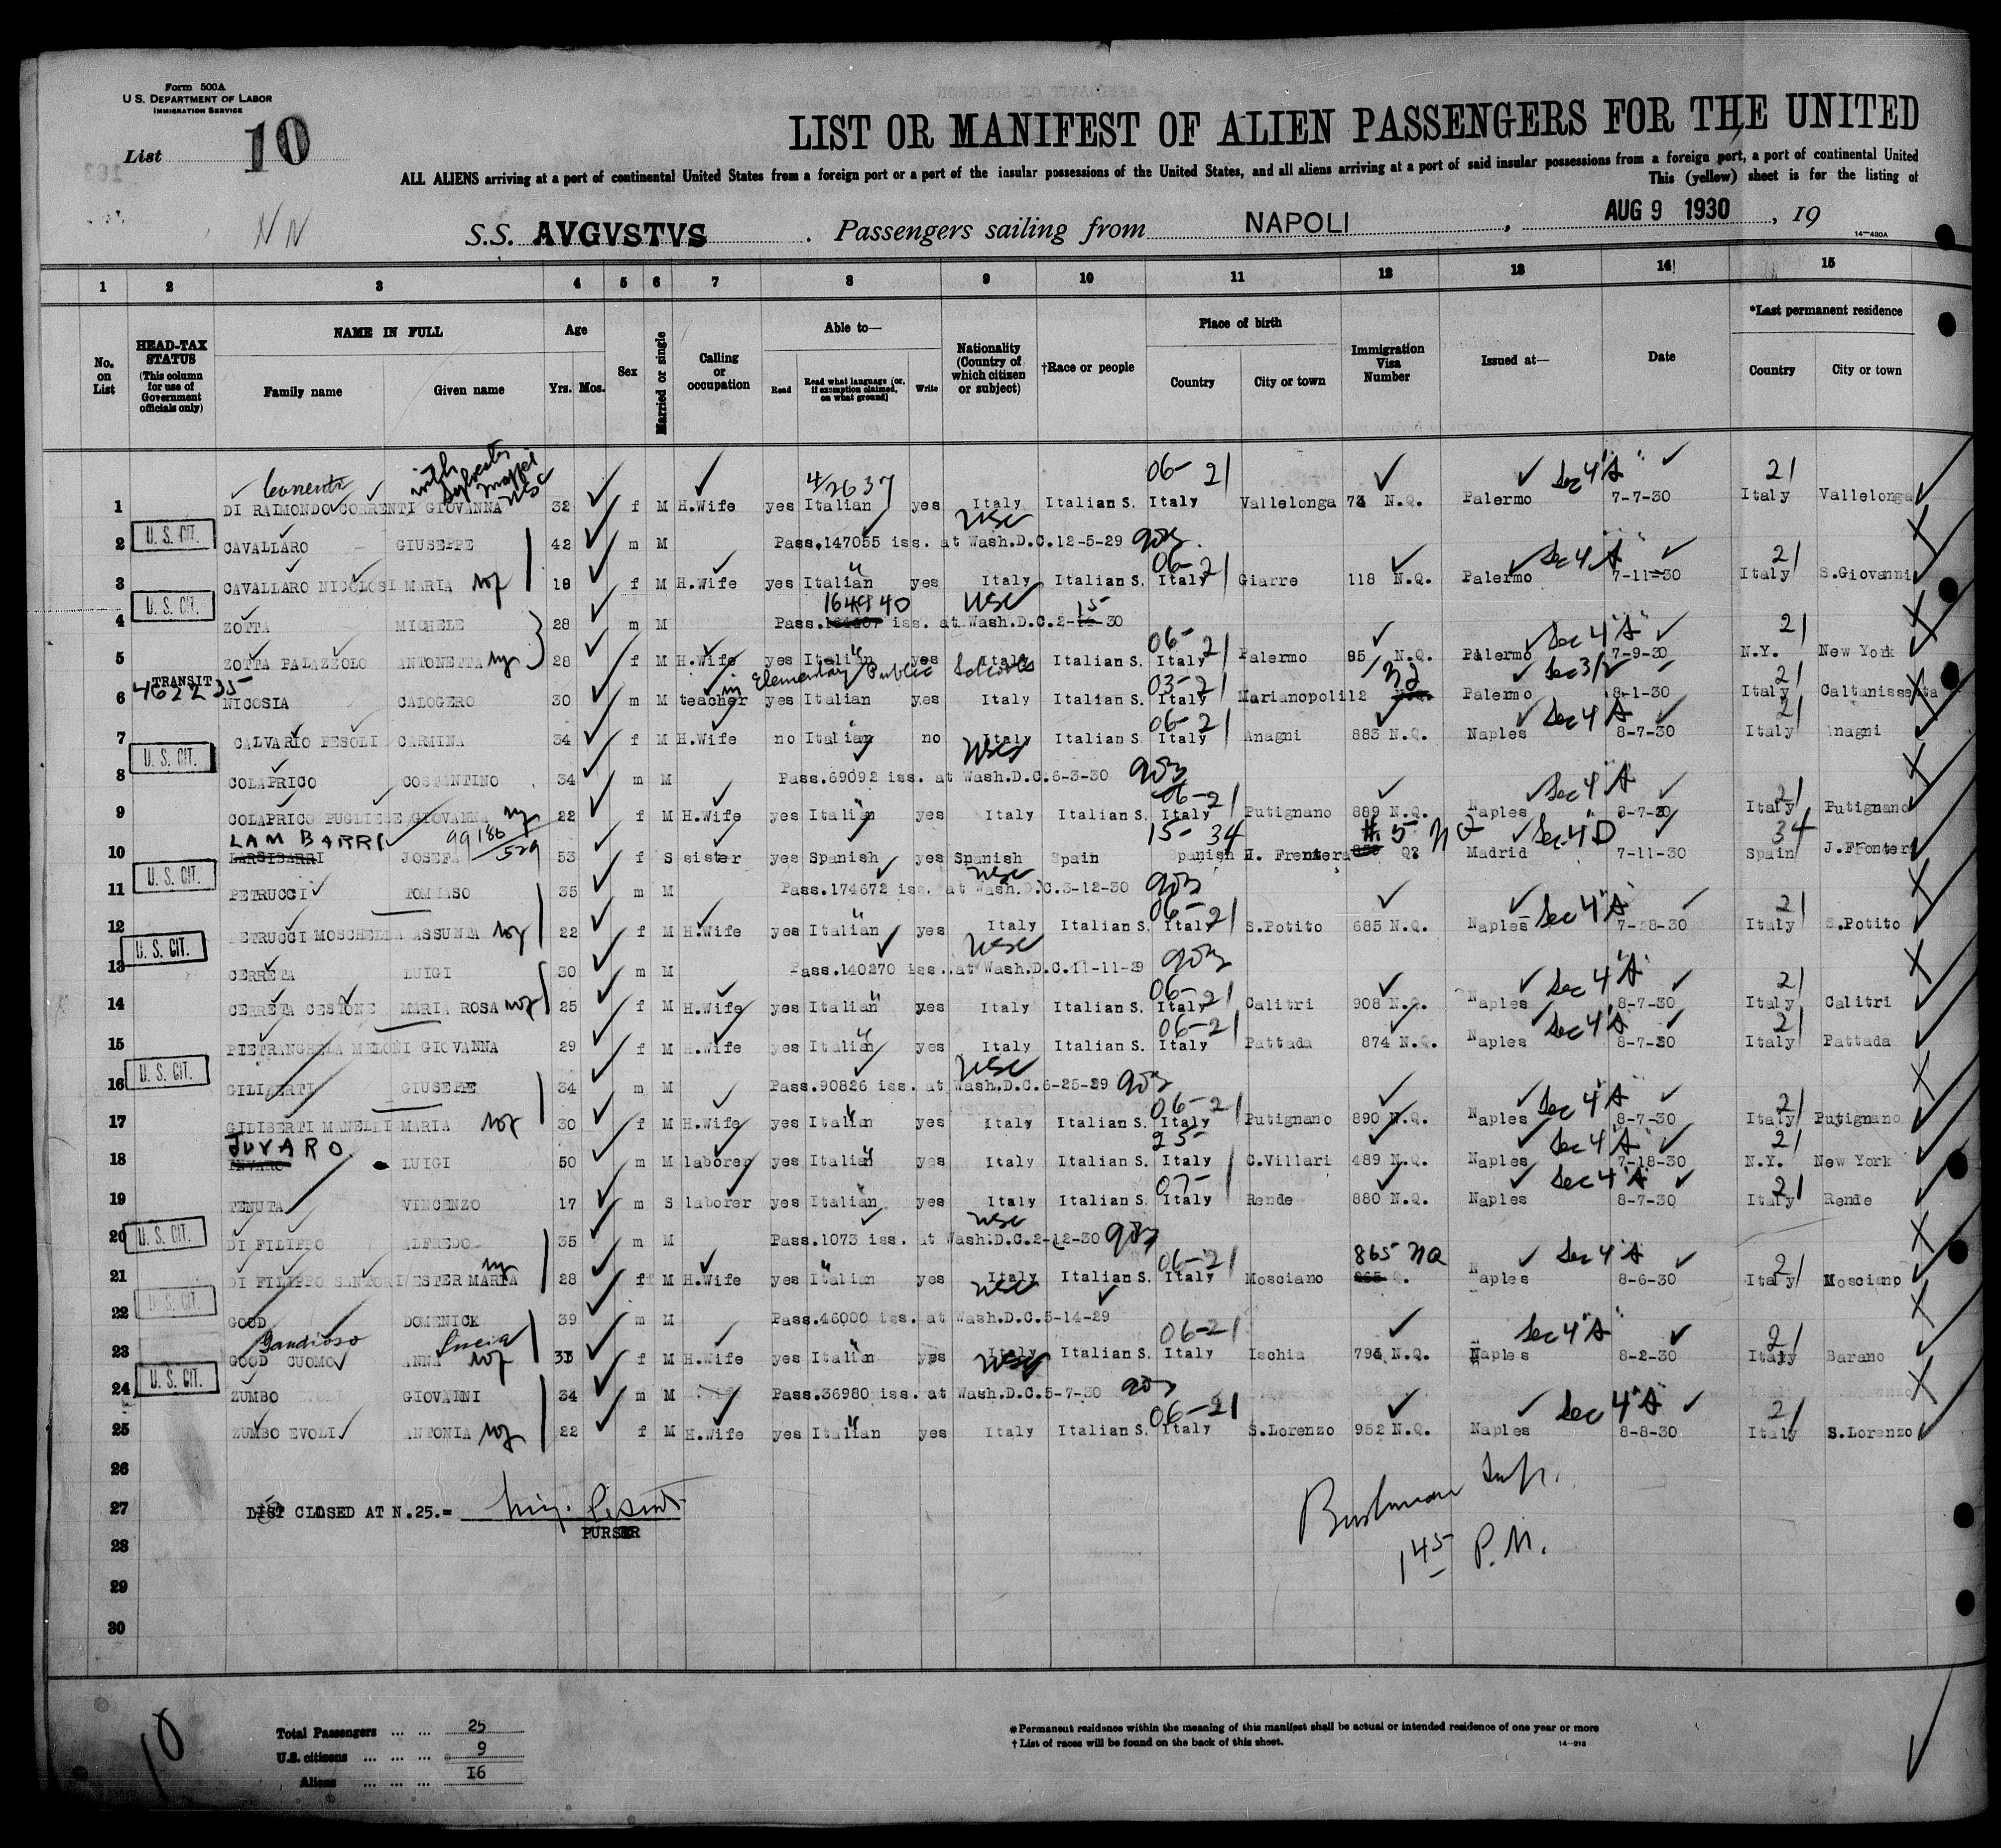 Form 500A
U. S. DEPARTMENT OF LABOR
IMMIGRATION SERVICE
List 10
LIST OR MANIFEST OF ALIEN PASSENGERS FOR THE UNITED
ALL ALIENS arriving at a port of continental United States from a foreign port or a port of the insular possessions of the United States, and all aliens arriving at a port of said insular possessions from a foreign port, a port of continental United
This (yellow) sheet is for the listing of
NN
S.S. AVGVSTVS . Passengers sailing from NAPOLI , AUG 9 1930 , 19
14—430A
1 2 3 4 5 6 7 8 9 10 11 12 13 14 15
No. on List
HEAD-TAX STATUS (This column for use of Government officials only)
NAME IN FULL
Family name Given name
Age Yrs. Mos.
Sex
Married or single
Calling or occupation
Able to— Read Read what language (or, if exemption claimed, on what ground) Write
Nationality (Country of which citizen or subject)
†Race or people
Place of birth Country City or town
Immigration Visa Number
Issued at—
Date
*Last permanent residence Country City or town
4/2637 06-21 Sec 4"A" 21
1 DI RAIMONDO CORRENTI GIOVANNA 32 f M H.Wife yes Italian yes Italy Italian S. Italy Vallelonga 73 N.Q. Palermo 7-7-30 Italy Vallelonga
U. S. CIT. USC
2 CAVALLARO GIUSEPPE 42 m M Pass.147055 iss. at Wash.D.C.12-5-29
06-21 Sec 4"A" 21
3 CAVALLARO NICOLOSI MARIA 18 f M H.Wife yes Italian yes Italy Italian S. Italy Giarre 118 N.Q. Palermo 7-11-30 Italy S.Giovanni
U. S. CIT. 164940 USC 15
4 ZOTTA MICHELE 28 m M Pass. iss. at Wash.D.C.2- 30
06-21 Sec 4"A" 21
5 ZOTTA PALAZZOLO ANTONETTA 28 f M H.Wife yes Italian yes Italy Italian S. Italy Palermo 95 N.Q. Palermo 7-9-30 N.Y. New York
TRANSIT in Elementary Public Schools 03-21 Sec 3/2 21
6 NICOSIA CALOGERO 30 m M teacher yes Italian yes Italy Italian S. Italy Marianopoli 12 Palermo 8-1-30 Italy Caltanissetta
06-21 Sec 4"A" 21
7 CALVARIO FESOLI CARMINA 34 f M H.Wife no Italian no Italy Italian S. Italy Anagni 883 N.Q. Naples 8-7-30 Italy Anagni
U. S. CIT. USC
8 COLAPRICO COSTANTINO 34 m M Pass.69092 iss. at Wash.D.C.6-3-30
06-21 Sec 4"A" 21
9 COLAPRICO PUGLIESE GIOVANNA 22 f M H.Wife yes Italian yes Italy Italian S. Italy Putignano 889 N.Q. Naples 8-7-30 Italy Putignano
LAMBARRI 99186/529 15-34 #5 NQ Sec 4"D 34
10 JOSEFA 53 f S sister yes Spanish yes Spanish Spain Spanish H. Frontera Q? Madrid 7-11-30 Spain J.Fronter
U. S. CIT. USC
11 PETRUCCI TOMMASO 35 m M Pass.174672 iss. at Wash.D.C.3-12-30
06-21 Sec 4"A" 21
12 PETRUCCI MOSCHELLA ASSUNTA 22 f M H.Wife yes Italian yes Italy Italian S. Italy S.Potito 685 N.Q. Naples 7-18-30 Italy S.Potito
U. S. CIT. USC
13 CERRETA LUIGI 30 m M Pass.140270 iss. at Wash.D.C.11-11-29
06-21 Sec 4"A" 21
14 CERRETA CESTONE MARIA ROSA 25 f M H.Wife yes Italian yes Italy Italian S. Italy Calitri 908 N.Q. Naples 8-7-30 Italy Calitri
06-21 Sec 4"A" 21
15 PIETRANGHELA MELONI GIOVANNA 29 f M H.Wife yes Italian yes Italy Italian S. Italy Pattada 874 N.Q. Naples 8-7-30 Italy Pattada
U. S. CIT. USC
16 GILIBERTI GIUSEPPE 34 m M Pass.90826 iss. at Wash.D.C.6-25-29
06-21 Sec 4"A" 21
17 GILIBERTI MANELLI MARIA 30 f M H.Wife yes Italian yes Italy Italian S. Italy Putignano 890 N.Q. Naples 8-7-30 Italy Putignano
JUVARO 25- Sec 4"A" 21
18 LUIGI 50 m M laborer yes Italian yes Italy Italian S. Italy C.Villari 489 N.Q. Naples 7-18-30 N.Y. New York
07- Sec 4"A" 21
19 TENUTA VINCENZO 17 m S laborer yes Italian yes Italy Italian S. Italy Rende 880 N.Q. Naples 8-7-30 Italy Rende
U. S. CIT. USC
20 DI FILIPPO ALFREDO 35 m M Pass.1073 iss. at Wash.D.C.2-12-30
06-21 865 NQ Sec 4"A" 21
21 DI FILIPPO SANTORI ESTER MARIA 28 f M H.Wife yes Italian yes Italy Italian S. Italy Mosciano Naples 8-6-30 Italy Mosciano
U. S. CIT. USC
22 GOOD DOMENICK 39 m M Pass.46000 iss. at Wash.D.C.5-14-29
Gaudioso Lucia 06-21 Sec 4"A" 21
23 GOOD CUOMO ANNA 33 f M H.Wife yes Italian yes Italy Italian S. Italy Ischia 794 N.Q. Naples 8-2-30 Italy Barano
U. S. CIT. USC
24 ZUMBO GIOVANNI 34 m M Pass.36980 iss. at Wash.D.C.5-7-30
06-21 Sec 4"A" 21
25 ZUMBO EVOLI ANTONIA 22 f M H.Wife yes Italian yes Italy Italian S. Italy S.Lorenzo 952 N.Q. Naples 8-8-30 Italy S.Lorenzo
26
27 LIST CLOSED AT N.25.=
PURSER
28
1 45 P.M.
29
30
10
Total Passengers ... ... 25
U.S. citizens ... ... ... 9
Aliens ... ... ... 16
*Permanent residence within the meaning of this manifest shall be actual or intended residence of one year or more
†List of races will be found on the back of this sheet.
14—213